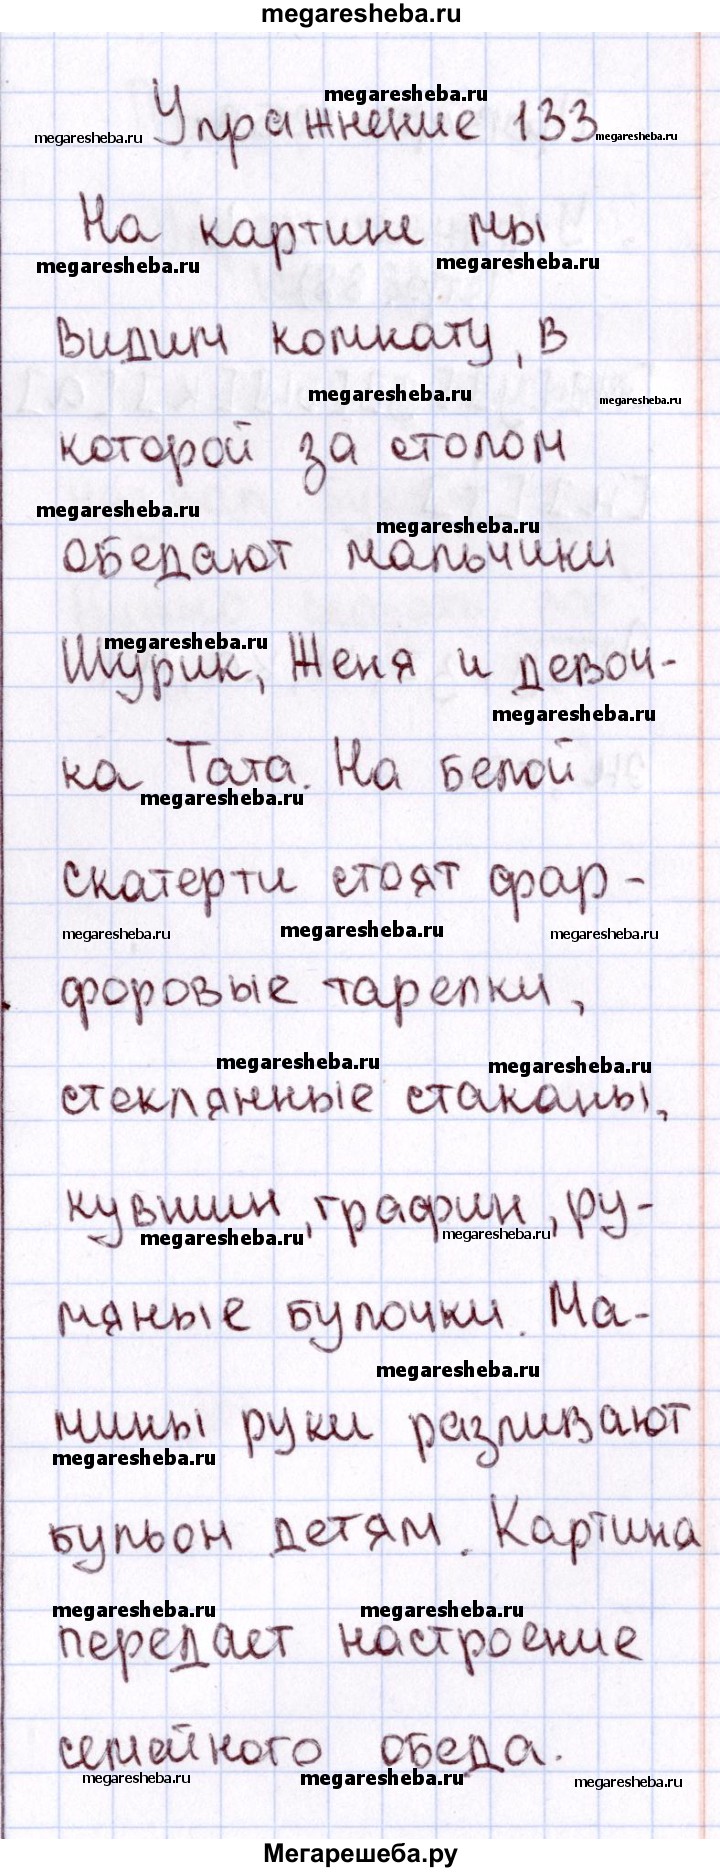 megaresheba.ru
megaresheba.ru
megaresheba.ru Упражнение 133 megaresheba.ru
На картине мы
megaresheba.ru megaresheba.ru
видим комнату, в
megaresheba.ru megaresheba.ru
которой за столом
megaresheba.ru megaresheba.ru
обедают мальчики
megaresheba.ru
Шурик, Женя и девоч-
megaresheba.ru
ка Тата. На белой
megaresheba.ru
скатерти стоят фар-
megaresheba.ru megaresheba.ru megaresheba.ru
форовые тарелки,
megaresheba.ru megaresheba.ru
стеклянные стаканы,
кувшин, графин, ру-
megaresheba.ru megaresheba.ru
мяные булочки. Ма-
megaresheba.ru
мины руки разливают
megaresheba.ru
бульон детям. Картина
megaresheba.ru megaresheba.ru
передает настроение
семейного обеда.
megaresheba.ru megaresheba.ru megaresheba.ru
Мегарешеба.ру